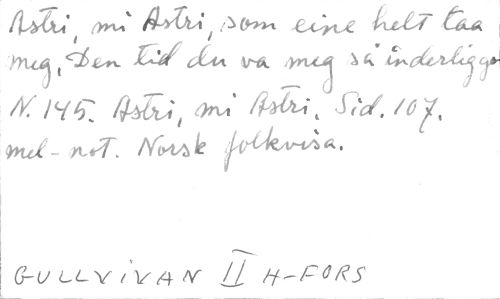 Astri, mi Astri, som eine helt taa
meg, Den tid du va meg så inderlig go
N. 145. Astri, mi Astri. Sid. 107.
mel-not. Norsk folkvisa.
GULLVIVAN II H-FORS